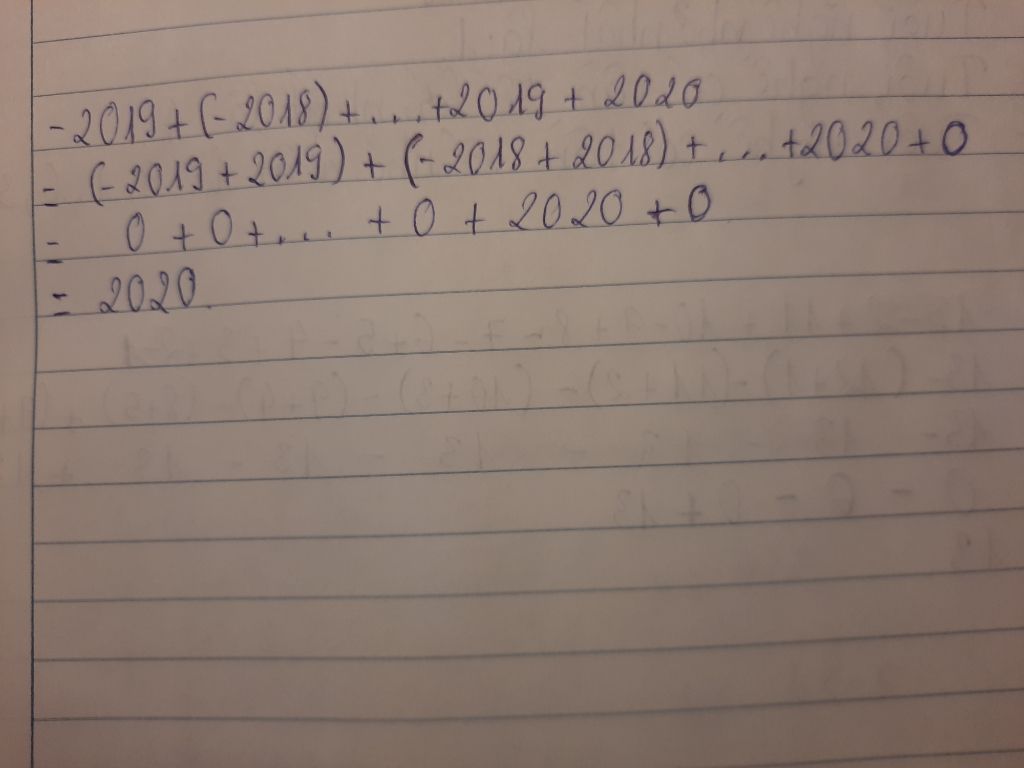 -2019+(-2018)+...+2019+2020
= (-2019+2019)+(-2018+2018)+...+2020+0
= 0+0+.... +0+2020+0
= 2020